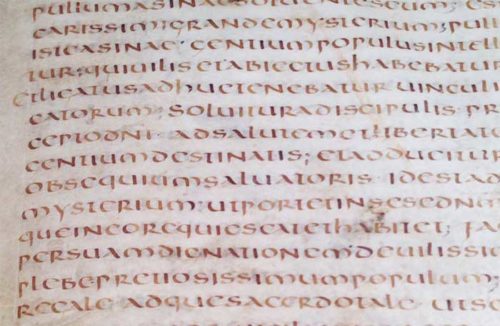 CARISSIMI; GRANDEMYSTERIUM; PULL
ISTEASINAE; GENTIUMPOPULUSINTELL
TUR; QUIUILISETABIECTUSHABEBATUR
ETLIGATUSADHUCTENEBATURUINCULI
CATORUM; SOLUITURADISCIPULIS PR
CEPTODNI ADSALUTEMETLIBERTATE
GENTIUMDESTINATIS; ETADDUCITUR
OBSEQUIUMSALUATORIS IDESTAD
MYSTERIUM; UTPORTETINSESEDNM
QUEINCOREQUIESCATETHABITET; FAC
PERSUAMDIGNATIONEMDEUILISSI
PLEBEPRETIOSISSIMUMPOPULUM
REGALE ADQUESACERDOTALE UTSO